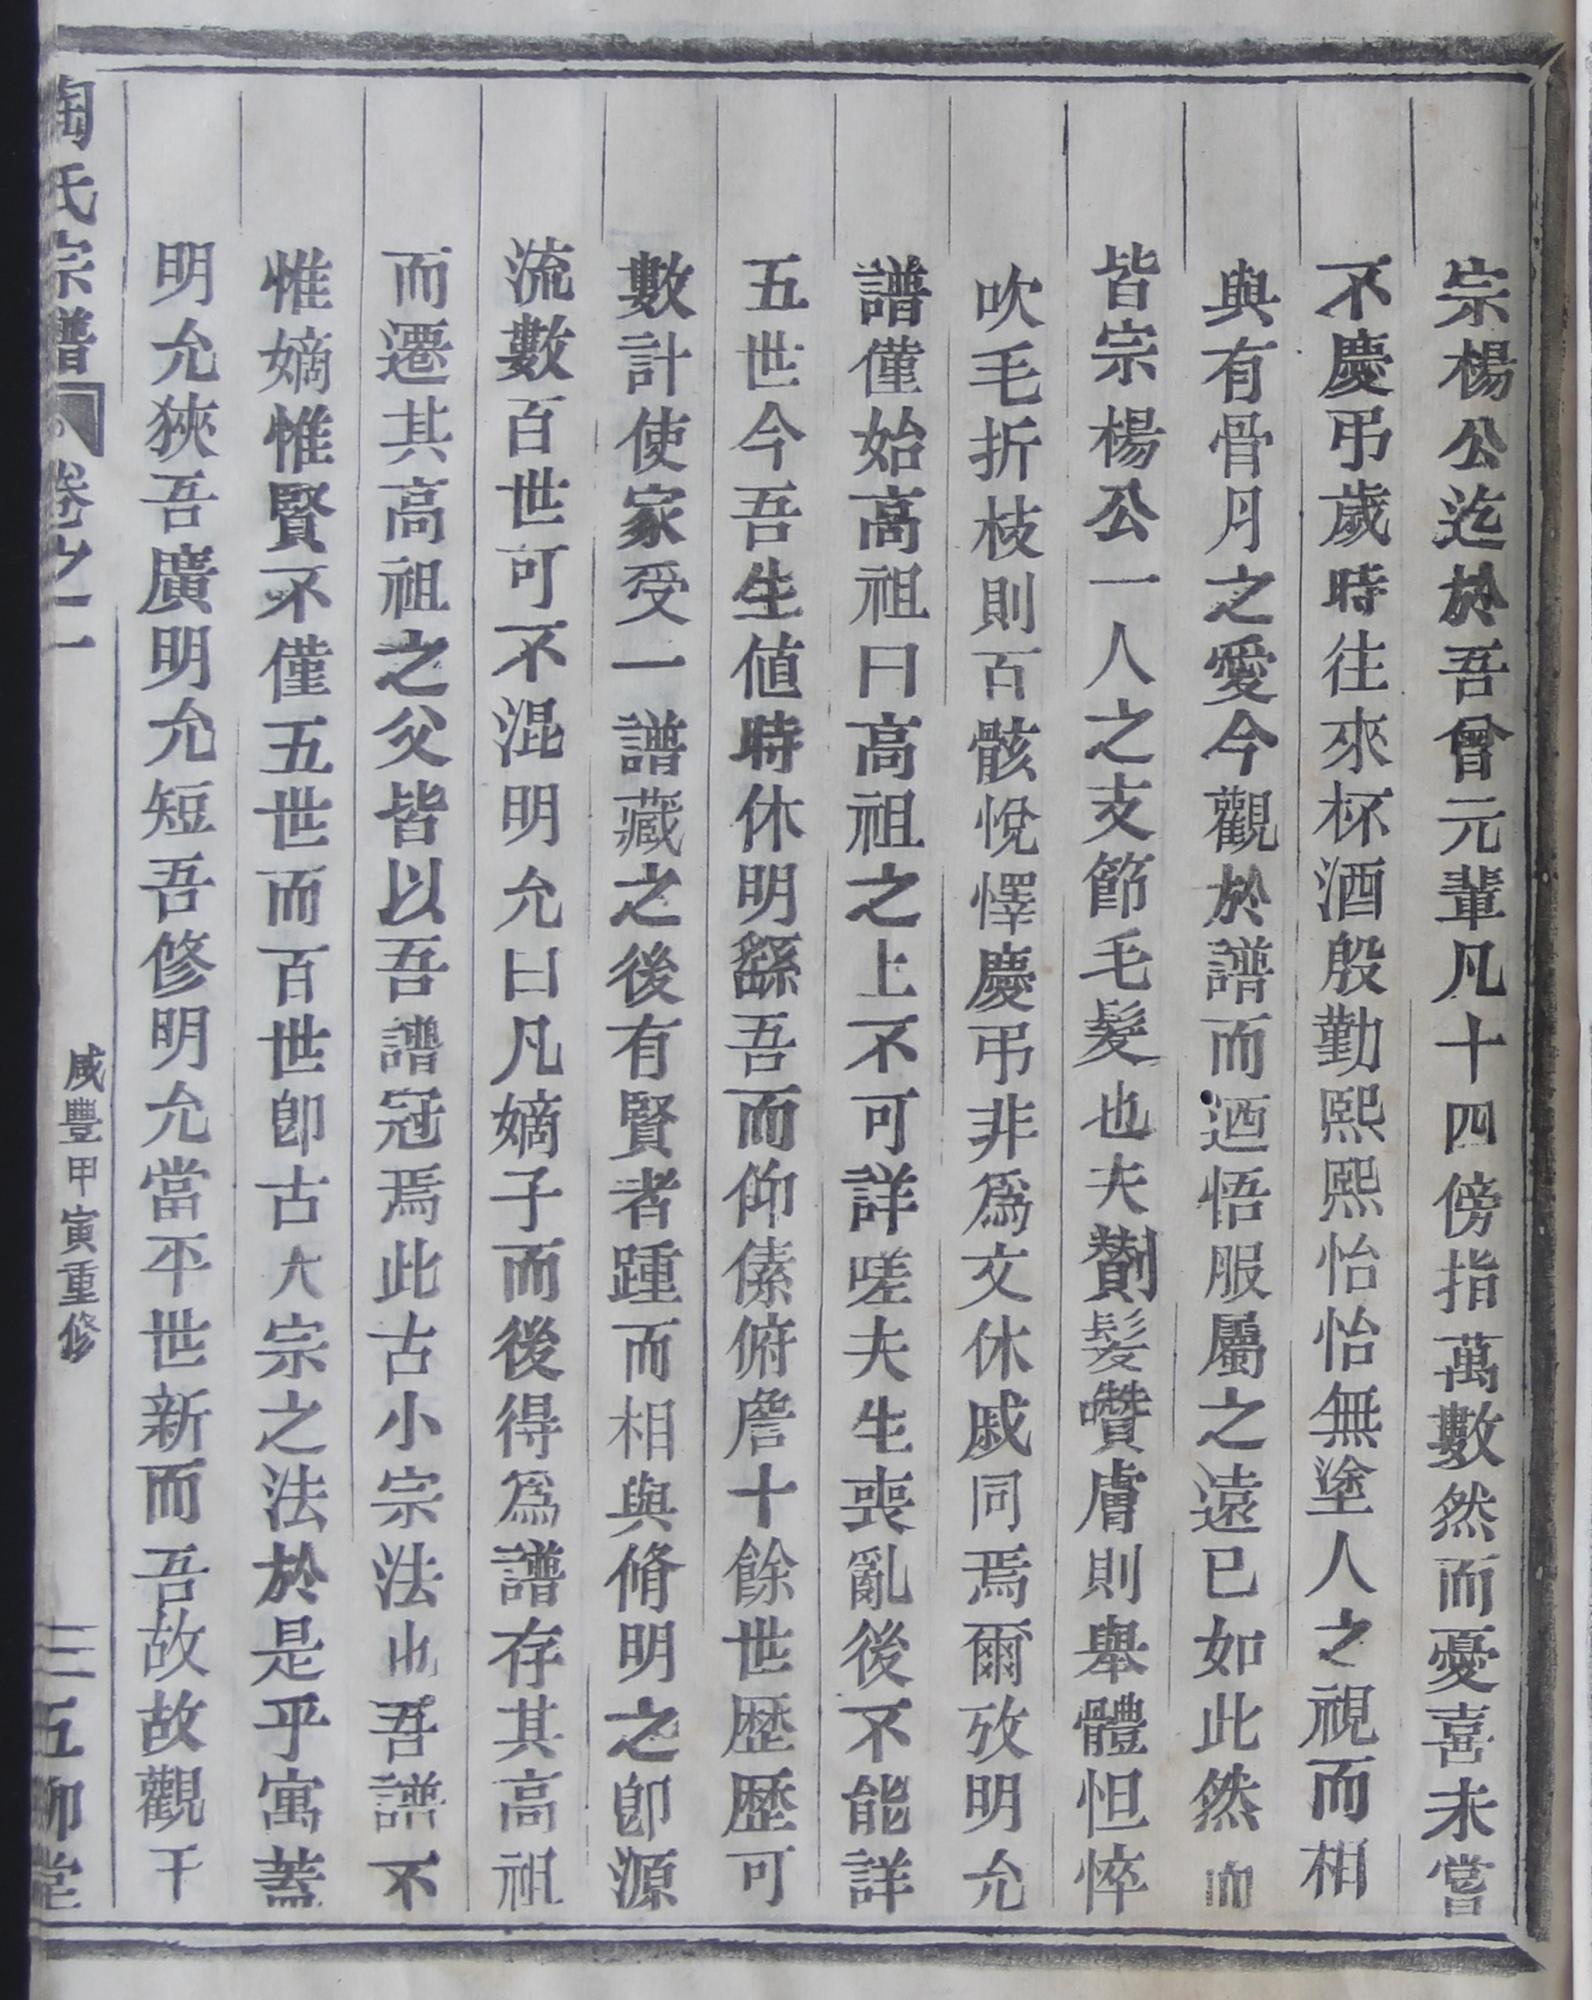 宗楊公迄於吾曾元輩凡十四傍指萬數然而憂喜未嘗
不慶弔歲時往來杯酒殷勤熙熙怡怡無塗人之視而相
與有骨月之愛今觀於譜而迺悟服屬之遠已如此然而
皆宗楊公一人之支節毛髮也夫劗髮囋膚則舉體怛悴
吹毛折枝則百骸悅懌慶弔非爲文休戚同焉爾攷明允
譜僅始高祖曰高祖之上不可詳嗟夫生喪亂後不能詳
五世今吾生値時休明繇吾而仰傃俯詹十餘世歷歷可
數計使家受一譜藏之後有賢者踵而相與脩明之卽源
流數百世可不混明允曰凡嫡子而後得爲譜存其高祖
而遷其高祖之父皆以吾譜冠焉此古小宗法也吾譜不
惟嫡惟賢不僅五世而百世卽古大宗之法於是乎寓蓋
明允狹吾廣明允短吾修明允當平世新而吾故故觀干
陶氏宗譜 卷之一 咸豐甲寅重修 三 五柳堂